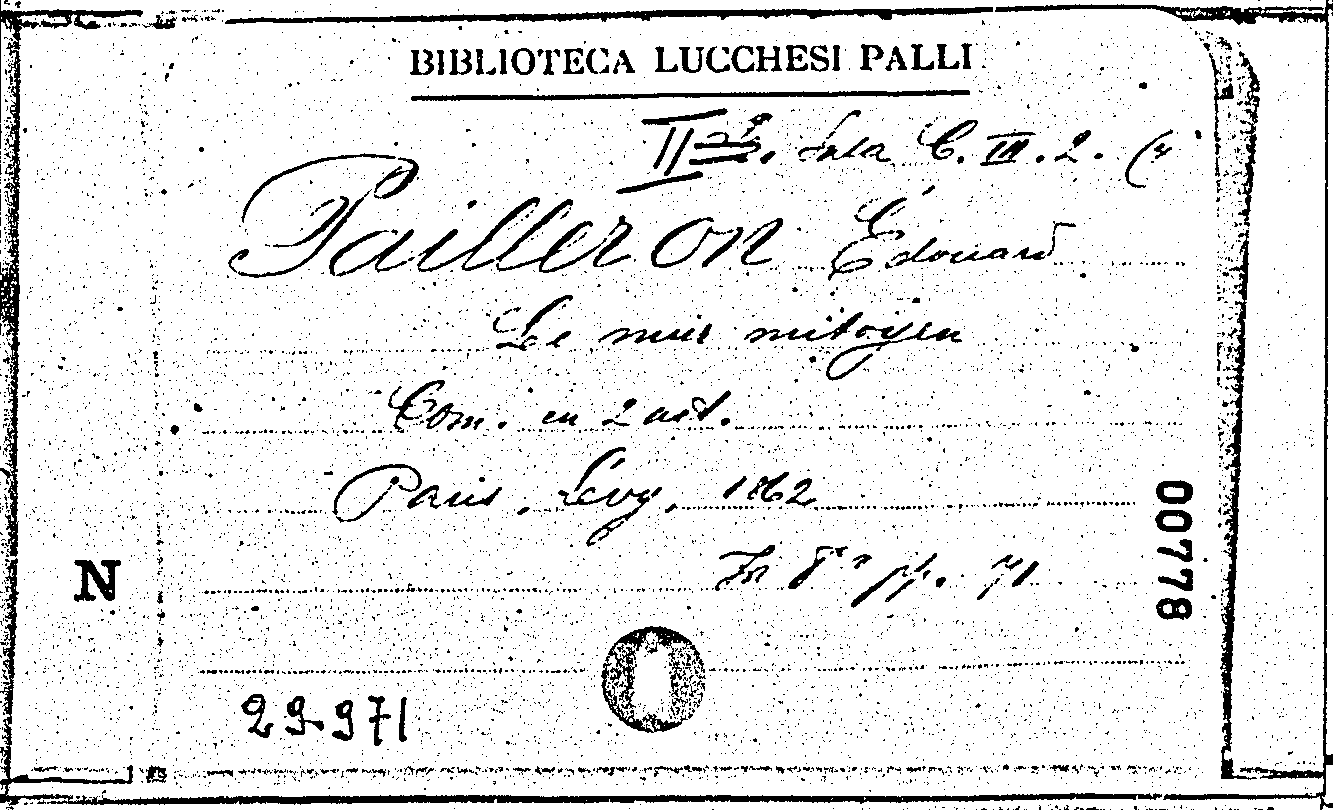 BIBLIOTECA LUCCHESI PALLI
IIa. Sala C. III. 2. (4
Pailleron Édouard
Le mur mitoyen
Com. en 2 act.
Paris, Lévy, 1862
In 8° pp. 71
00778
N
29.971